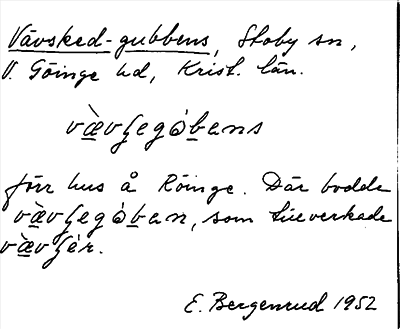 Vävsked-gubbens, Stoby sn,
V. Göinge hd, Krist. län.
förr hus å Röinge. Där bodde
som tillverkade
E. Bergenrud 1952